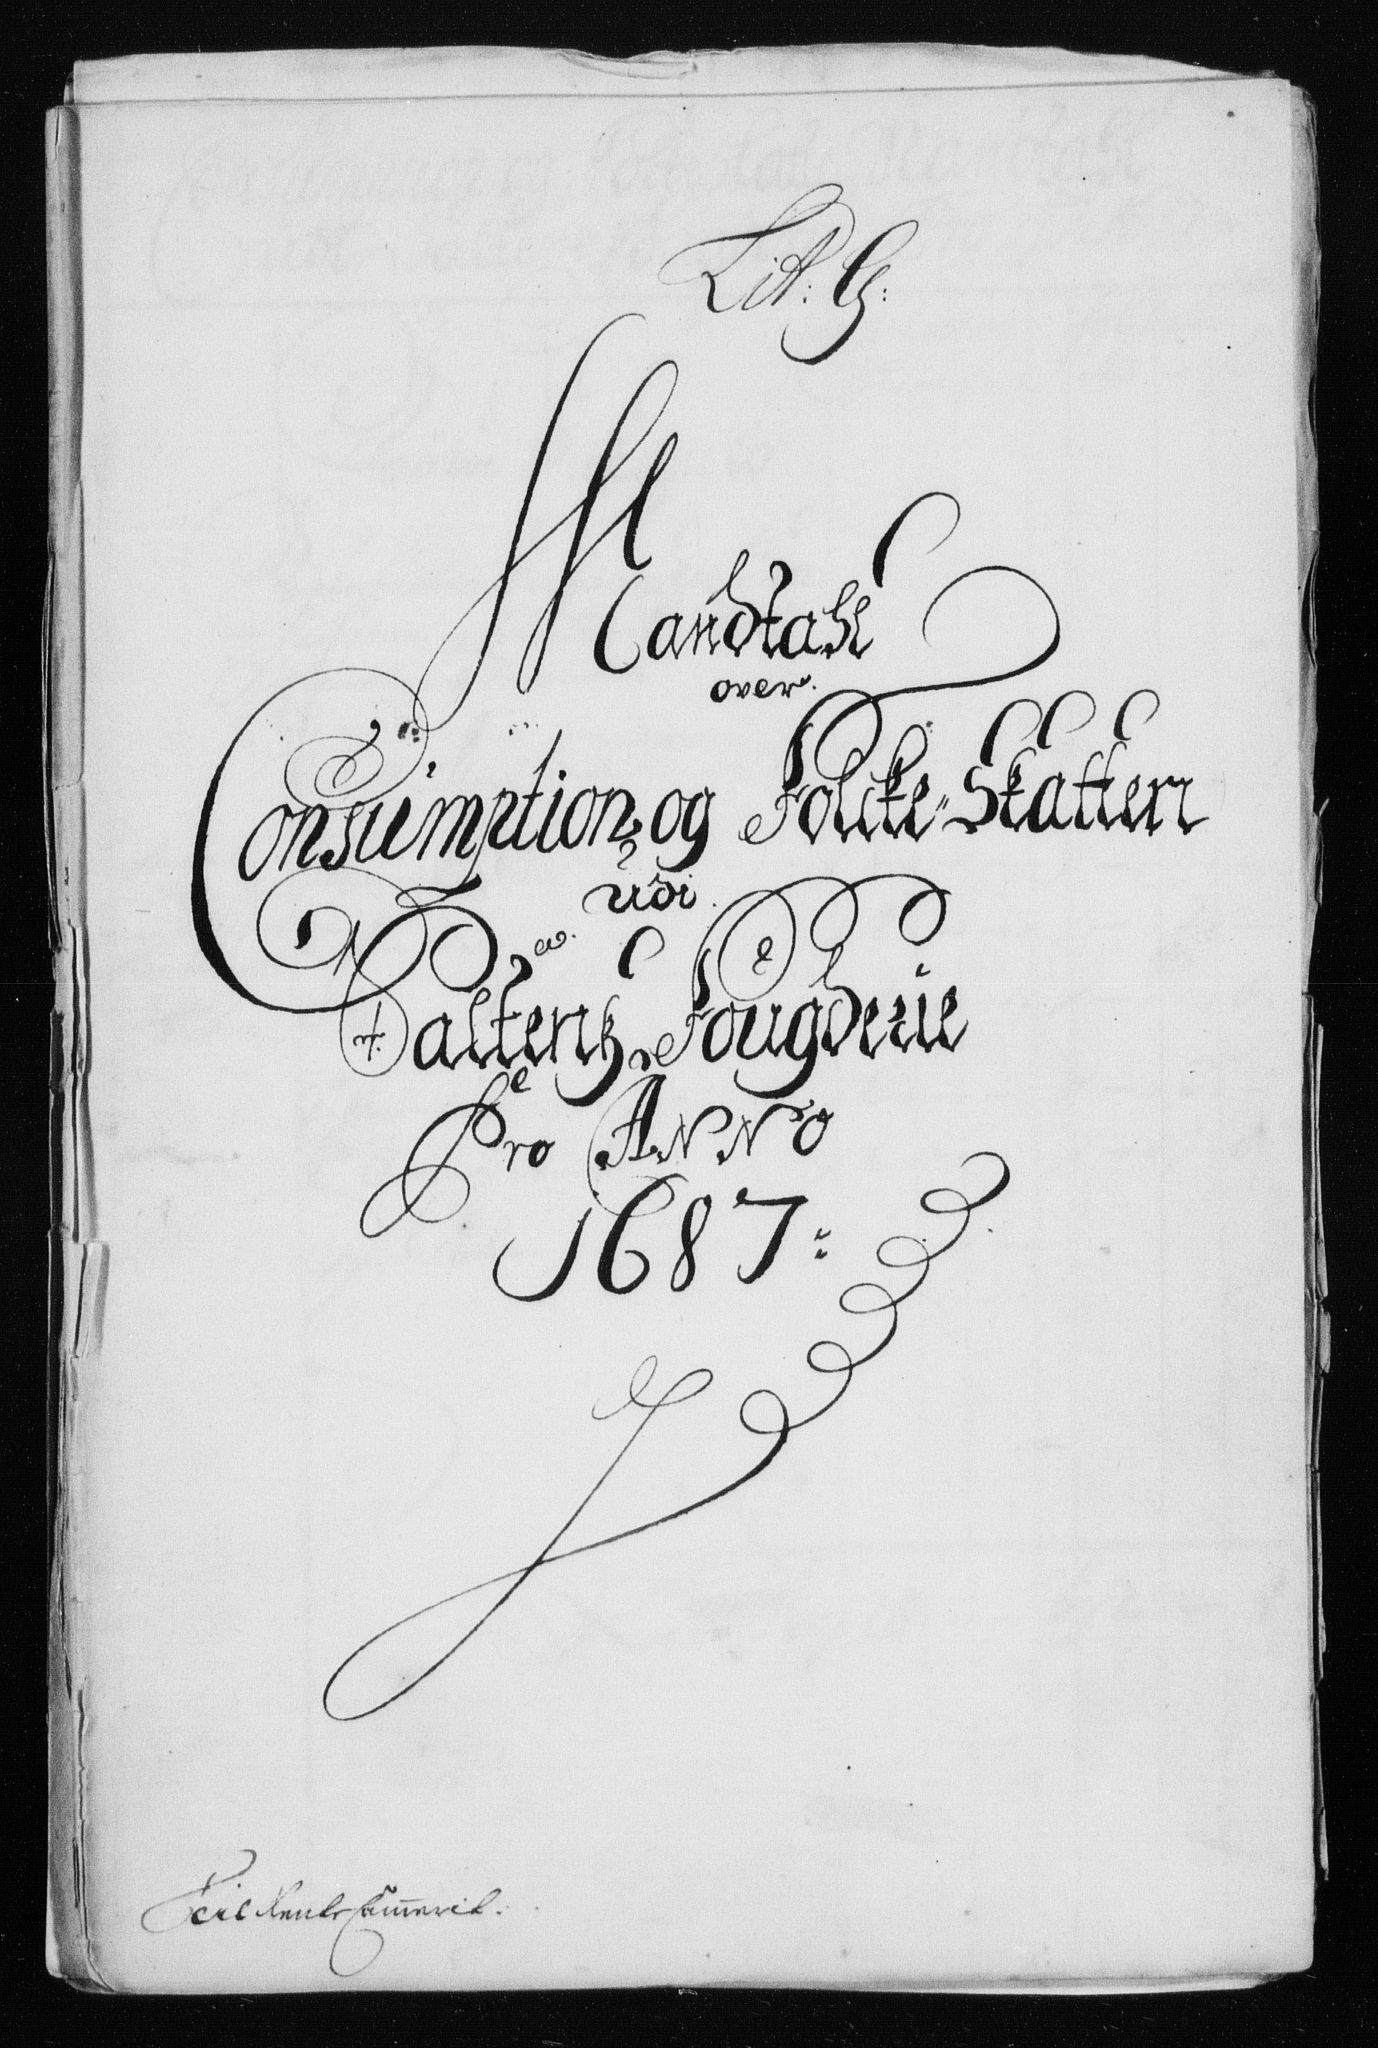 Lit: G:
Mandtahl
over
Consumption, og Folcke-Skatten
udi
Saltens Fougderie
Pro ANNO
1687:
Til Rente Cammerit.